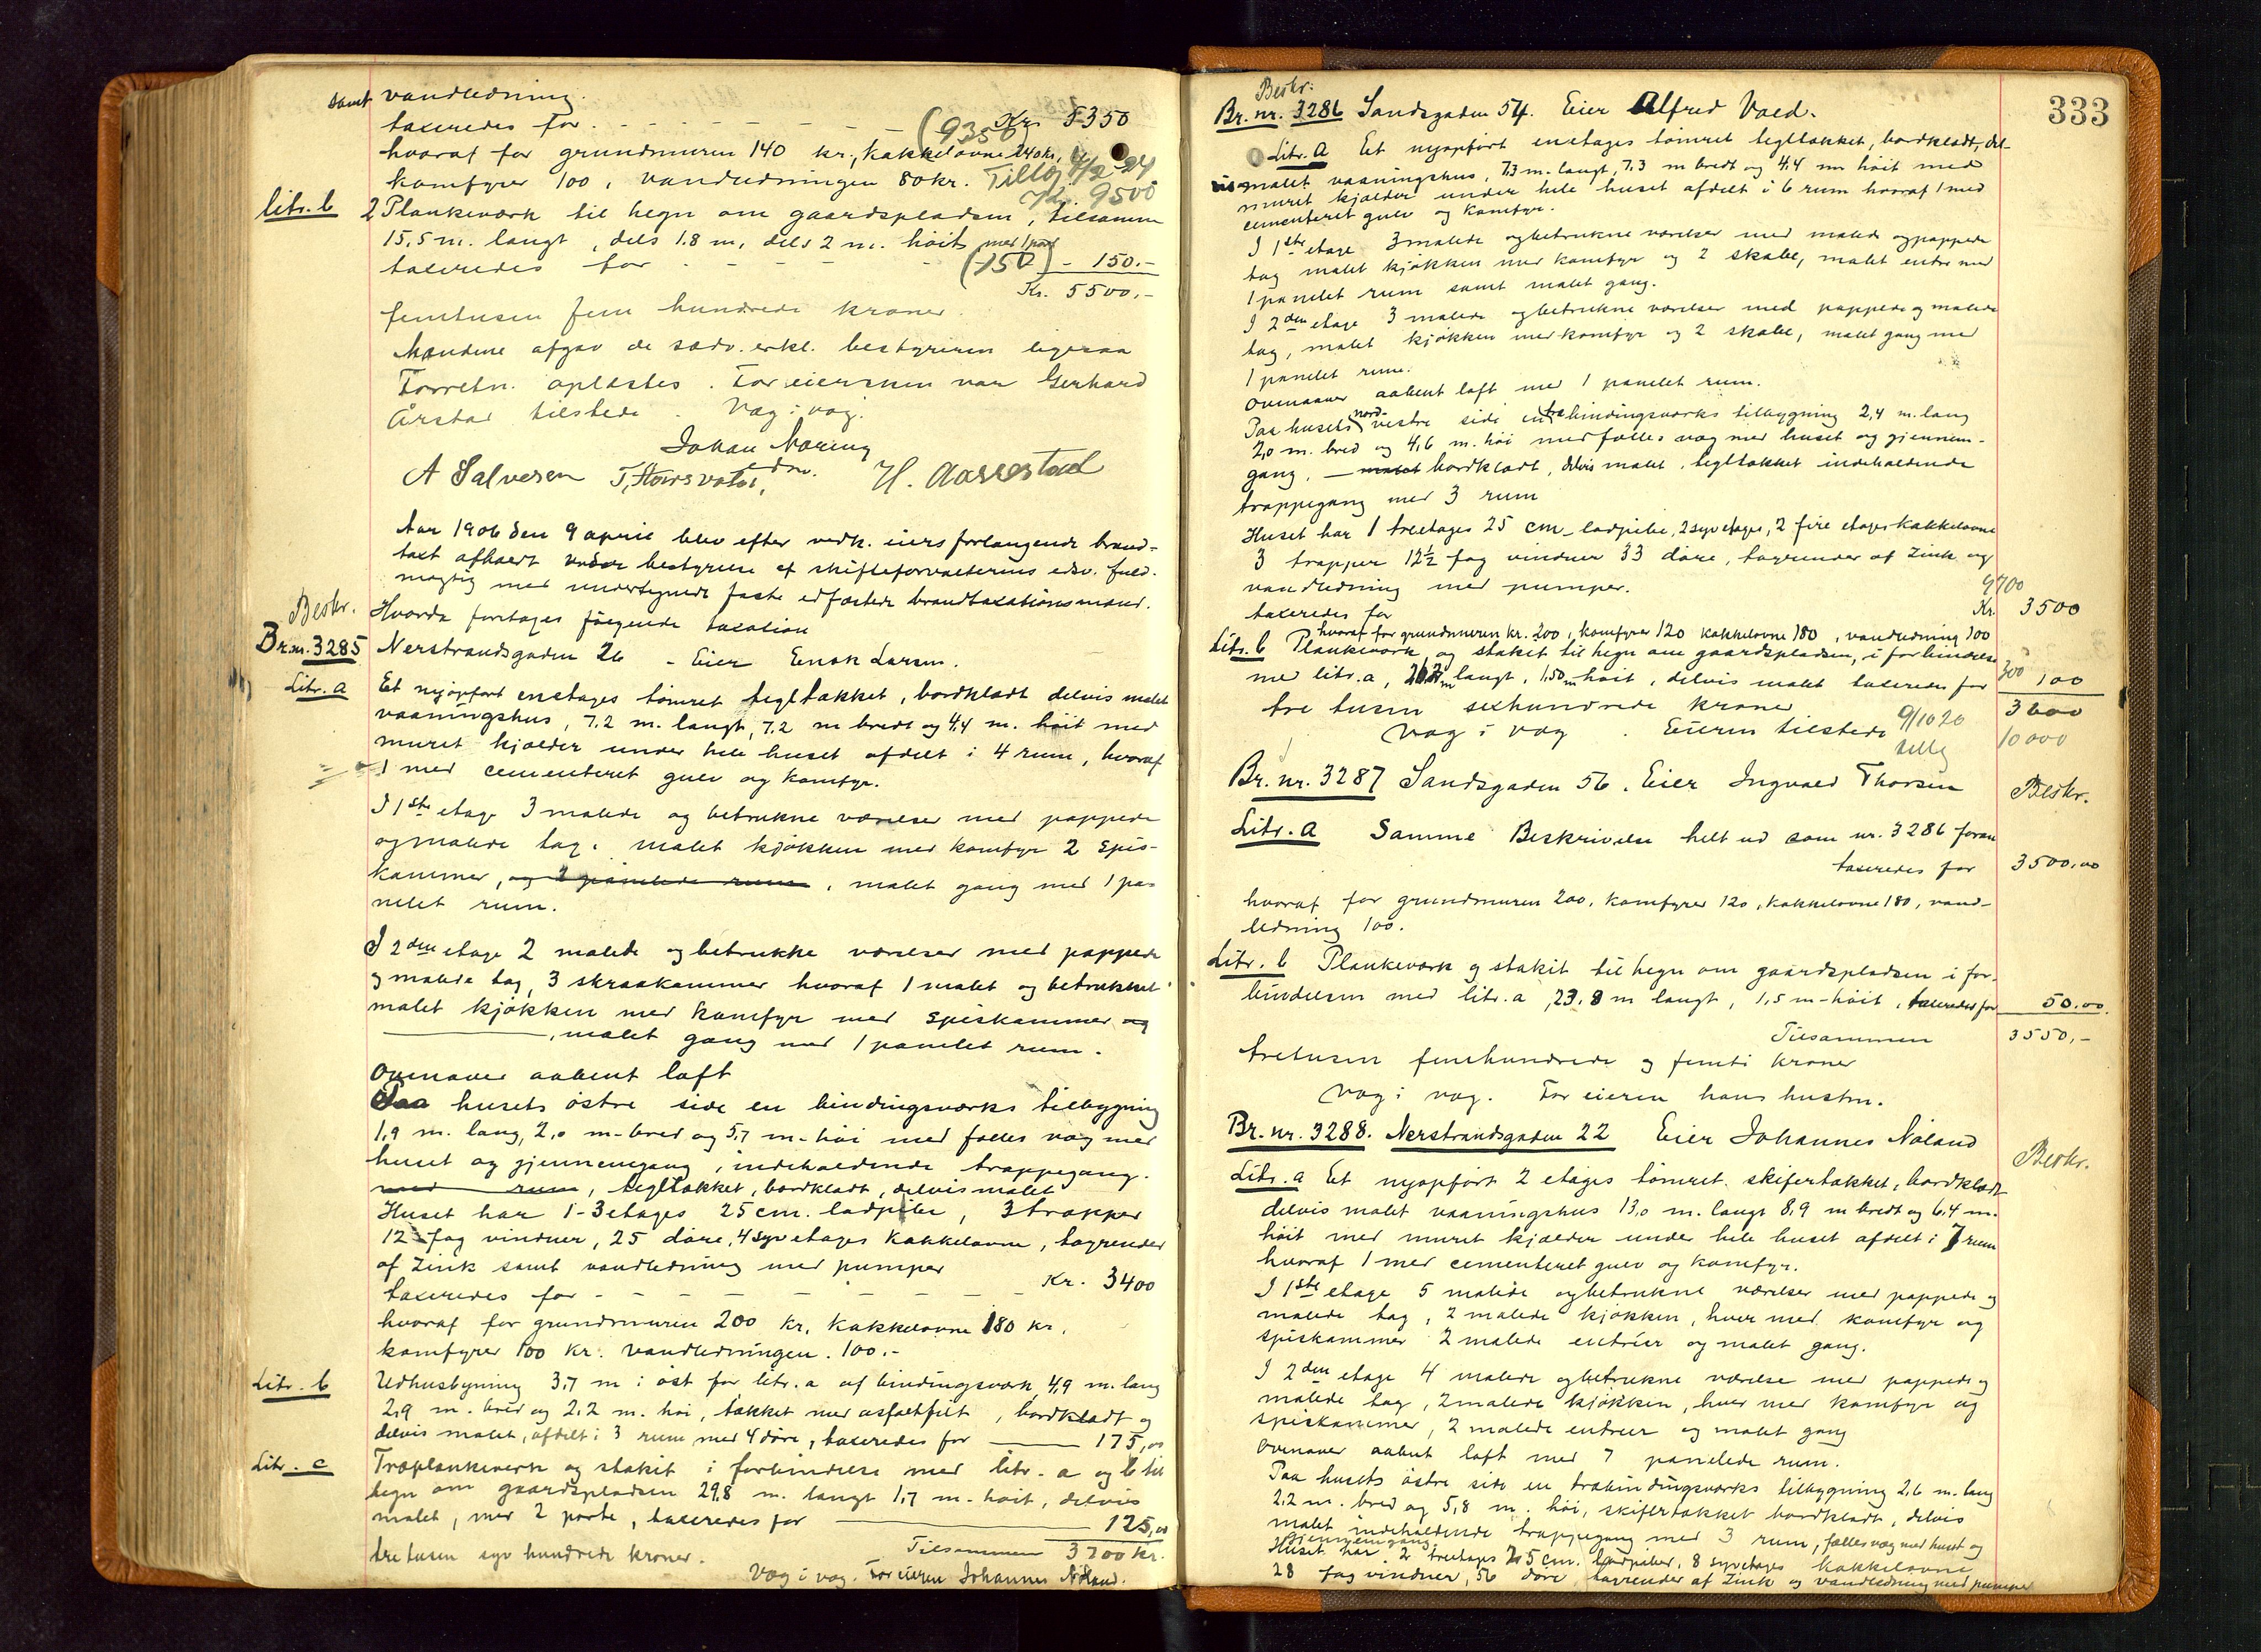 samt vandledning.
taxeredes for - - - - - - (9350) Kr. 5350
hvoraf for grundmuren 140 kr., kakkelovne 240 kr,
komfyrer 100, vandledningen 80 kr. Tillæg 4/2 24
Kr. 9500
Litr. b 2 Plankeværk til hegn om gaardspladsen, tilsamme
15,5 m. langt, dels 1.8 m, dels 2 m. høit med 1 port
taxeredes for - - - - (150) - 150.-
Kr. 5500,-
femtusen fem hundrede kroner.
Mændene afgav de sædv. erkl. bestyreren ligesaa
Forretn. oplæstes. For eiersken var Gerhard
Årstad tilstede. Væg i væg.
Johan Næring
edm.
A Salvesen T. Horsvold, H. Aarrestad
Aar 1906 den 9 april blev efter vedk. eiers forlangende brand-
taxt afholdt under bestyrelse af skifteforvalterens edsv. fuld-
mægtig med undertegnede faste edfæstede brandtaxationsmænd.
Beskr. Hvorda foretages følgende taxation
Br.nr. 3285 Nerstrandsgaden 26 - Eier Enok Larsen.
Litr. a Et nyopført enetages tømret tegltakket, bordklædt delvis malet
vaaningshus, 7,2 m. langt, 7,2 m bredt og 4,4 m. høit med
muret kjælder under hele huset afdelt i 4 rum, hvoraf
1 med cementeret gulv og komfyr.
I 1ste etage 3 malede og betrukne værelser med pappede
og malede tag. malet kjøkken med komfyr 2 spis-
kammer, og 2 panelede rum, malet gang med 1 pa-
nelet rum.
I 2den etage 2 malede og betrukke værelser med pappede
og malede tag, 3 skraakammer hvoraf 1 malet og betrukket
malet kjøkken med komfyr med spiskammer og
, malet gang med 1 panelet rum.
Ovenover aabent loft
Paa husets østre side en bindingsværks tilbygning
1,9 m. lang, 2,0 m-bred og 5,7 m-høi med fælles væg med
huset og gjennemgang, indeholdende trappegang.
med rum, tegltakket, bordklædt, delvis malet
Huset har 1-3 etages 25 cm. ladpibe, 3 trapper
12 fag vinduer, 25 døre, 4 syv etages kakkelovne, tagrender
af Zink samt vandledning med pumper
taxeredes for - - - - - - - Kr. 3400
hvoraf for grundmuren 200 kr, kakkelovne 180 kr,
komfyrer 100 kr. vandledningen. 100.-
Litr. b Udhusbygning 3,7 m i øst for litr. a af bindingsværk 4,9 m. lang
2,9 m. bred og 2,2 m. høi, takket med asfaltfilt, bordklædt og
delvis malet, afdelt i 3 rum med 4 døre, taxeredes for 175,00
Litr. c Træplankeverk og stakit i forbindelse med litr. a og b til
hegn om gaardspladsen 29,8 m. langt 1,7 m. høit, delvis
malet, med 2 porte, taxeredes for 125,00
Tilsammen 3700 kr.
tre tusen syv hundrede kroner.
Væg i væg. For eieren Johannes Nøland.
333
Beskr.
Br. nr. 3286 Sandsgaden 54. Eier Alfred Vold.
Litr. a Et nyopført enetages tømret tegltakket, bordklædt, del-
vis malet vaaningshus, 7,3 m. langt, 7,3 m bredt og 4,4 m høit med
muret kjælder under hele huset afdelt i 6 rum hvoraf 1 med
cementeret gulv og komfyr.
I 1ste etage 3 malede og betrukne værelser med malede og pappede
tag malet kjøkken med komfyr og 2 skabe, malet entre med
1 panelet rum samt malet gang.
I 2den etage 3 malede og betrukne værelser med pappede og malede
tag, malet kjøkken med komfyr og 2 skabe, malet gang med
1 panelet rum.
Ovenover aabent loft med 1 panelet rum.
Paa husets nord-vestre side en træbindingsværks tilbygning 2,4 m. lang
2,0 m. bred og 4,6 m. høi med fælles væg med huset og gjennem-
gang. malet bordklædt, delvis malet, tegltakket indeholdende
trappegang med 3 rum
Huset har 1 treetages 25 cm ladpibe, 2 syv etages, 2 fire etages kakkelovne
3 trapper 12½ fag vinduer 33 døre, tagrender af Zink og
vandledning med pumper. 9700
taxeredes for Kr. 3500
hvoraf for grundmuren kr. 200, komfyrer 120 kakkelovne 180, vandledning 100
Litr. b Plankeværk og stakit til hegn om gaardspladsen, i forbindelse
med litr. a, langt, 1,50 m høit, delvis malet taxeredes for 300 100
tre tusen sexhundrede kroner 3600
væg i væg. Eieren tilstede 9/10 20
tillæg 10000
Br. nr. 3287 Sandsgaden 56. Eier Ingvald Thorsen Beskr.
Litr. a Samme Beskrivelse helt ud som nr. 3286 foran
taxeredes for 3500,00
hvoraf for grundmuren 200, komfyrer 120, kakkelovne 180, vand-
ledning 100.
Litr. b Plankeværk og stakit til hegn om gaardspladsen i for-
bindelsen med litr. a, 23,8 m langt, 1,5 m-høit, taxeredes for 50.00.
Tilsammen 3550,-
tretusen femhundrede og femti kroner
væg i væg. For eieren hans hustru.
Br. nr. 3288. Nerstrandsgaden 22 Eier Johannes Nøland
Beskr.
Litr. a Et nyopført 2 etages tømret skifertakket, bordklædt
delvis malet vaaningshus 13,0 m. langt 8,9 m bredt og 6,4 m.
høit med muret kjælder under hele huset afdelt i 7 rum
hvoraf 1 med cementeret gulv og komfyr.
I 1ste etage 5 malede og betrukne værelser med pappede og
malede tag, 2 malede kjøkken, hver med komfyr og
spiskammer 2 malede entréer og malet gang.
I 2den etage 4 malede og betrukne værelse med pappede og
malede tag, 2 malede kjøkken, hver med komfyr og
spiskammer, 2 malede entreer og malet gang
Ovenover aabent loft med 7 panelede rum.
Paa husets østre side en træbindingsværks tilbygning 2,6 m. lang
2,2 m. bred og 5,8 m. høi, skifertakket bordklædt, delvis
malet indeholdende trappegang med 3 rum, fælles væg med huset og
gjennemgang.
Huset har 2 treetages 25 cm. ladpiber, 8 syvetages kakkelovne
28 fag vinduer, 56 døre tagrender af Zink og vandledning med pumper